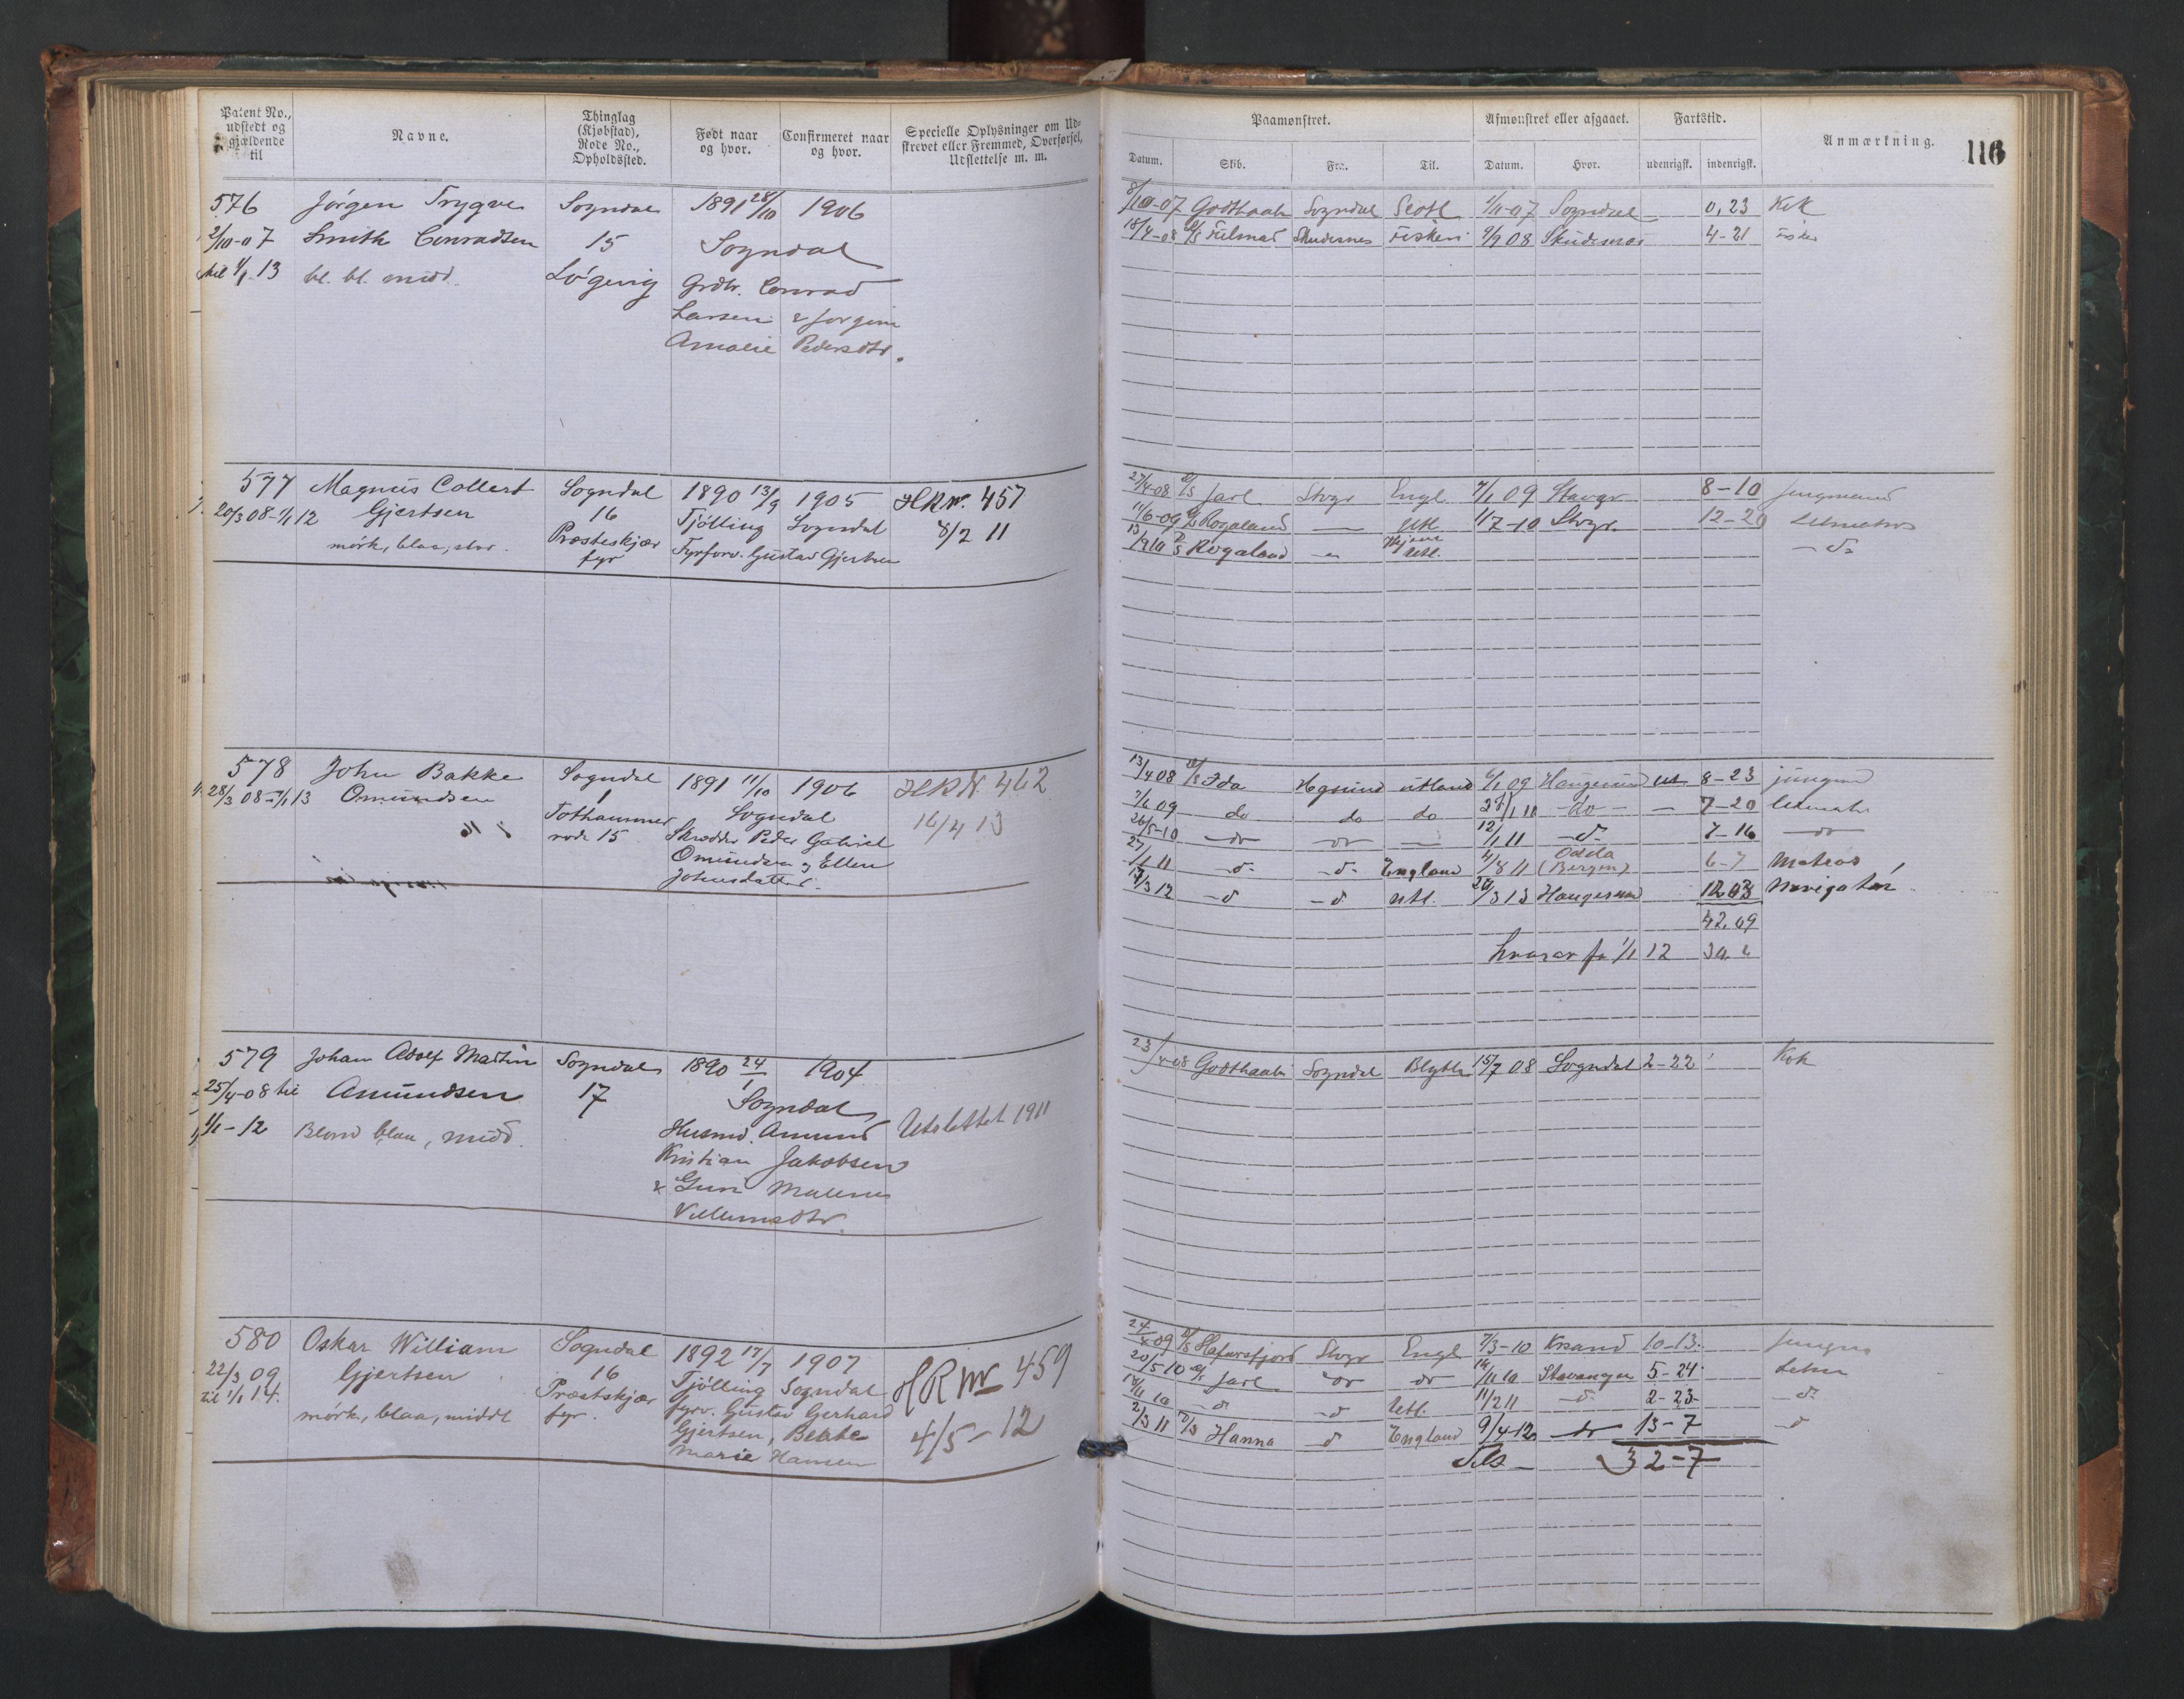 Patent No., udstedt og gjældende til
Navne.
Thinglag (Kjøbstad), Rode No., Opholdssted.
Født naar og hvor.
Confirmeret naar og hvor.
Specielle Oplysninger om Udskrevet eller Fremmed, Overførsel, Udslettelse m. m.
Paamønstret.
Afmønstret eller afgaaet.
Fartstid.
Anmærkning.
116
Datum. Skib. Fra. Til. Datum. Hvor. udenrigsk. indenrigsk.
576 Jörgen Trygve Sogndal 1891 28/10 1906
2/10-07 Smith Conradsen 15 Sogndal
til 1/1 13 bl. bl. midd. Lögevig Grdbr. Conrad
Larsen & Jorgine
Amalie Pedersdtr.
8/10-07 Godthaab Sogndal Scotl 1/11-07 Sogndal 0,23 Kok
18/4-08 Skudesnes Fiskeri 9/9 08 Skudesnes 4-21 Fisker
577 Magnus Collert Sogndal 1890 13/9 1905 HRNr. 457
20/3 08-1/1 12 Gjertsen 16 Tjölling Sogndal 8/2 11
mörk, blaa, stor. Præsteskjær Fyrforv. Gustav Gjertsen
fyr
27/4-08 D/S Jarl Stvgr Engl. 7/1 09 Stavgr 8-10 Jungmand
11/6-09 D/S Rogaland Utl 1/7-10 Stvgr. 12-20 Letmatros
D/S Rogaland Utl. - do
578 John Bakke Sogndal 1891 11/10 1906 HRN 462
28/3 08-1/1 13 Omundsen 1 Sogndal 16/4 13
Tothammer Skrædder Peder Gabriel
rode 15 Omundsen og Ellen
Johnsdatter.
13/4 08 D/S Ida Hgsund utland 6/1 09 Haugesund ut 8-23 jungmd
7/6 09 do do do 27/1 10 - do - 7-20 letmatr
26/5-10 - do do 12/1 11 - do 7-16 - do
27/1 11 - do - do England 4/8 11 Odda (Bergen) 6-7 Matros
17/3 12 - do - do Utl. 20/3 13 Haugesund 12.03 Navigatør
42.09
hvorav fr 1/1 12
579 Johan Adolf Martin Sogndal 1890 24/1 1904
25/4-08 til Amundsen 17 Sogndal
1/1-12 Blond blaa, midd. Husmd. Amund Utslettet 1911
Kristian Jakobsen
& Guri Malene
Villumsdtr.
23/4-08 Godthaab Sogndal Blyth 15/7 08 Sogndal 2-22 Kok
580 Oskar William Sogndal 1892 17/7 1907 HRNr 459
22/3 09 Gjertsen 16 Tjölling Sogndal 4/5-12
til 1/1 14. mörk, blaa, middl Præstskjær fyrv. Gustav Gerhard
fyr. Gjertsen, Beate
Marie Hansen
24/4 09 D/S Hafursfjord Stvgr Engl 7/3-10 Krsand 10-13. Jungm
20/5 10 D/S Jarl do do Stavanger 5-24 Letm
- do - do Utl. 11/2 11 - do 2-23- - do
2/3 11 D/S Hanna - do England 9/4-12 do 13-7 - do
Tils - 32-7